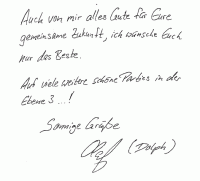 Auch von mir alles Gute für Eure
gemeinsame Zukunft, ich wünsche Euch
nur das Beste.
Auf viele weitere schöne Parties in der
Ebene 3 ...!
Sonnige Grüße
(Dolph)